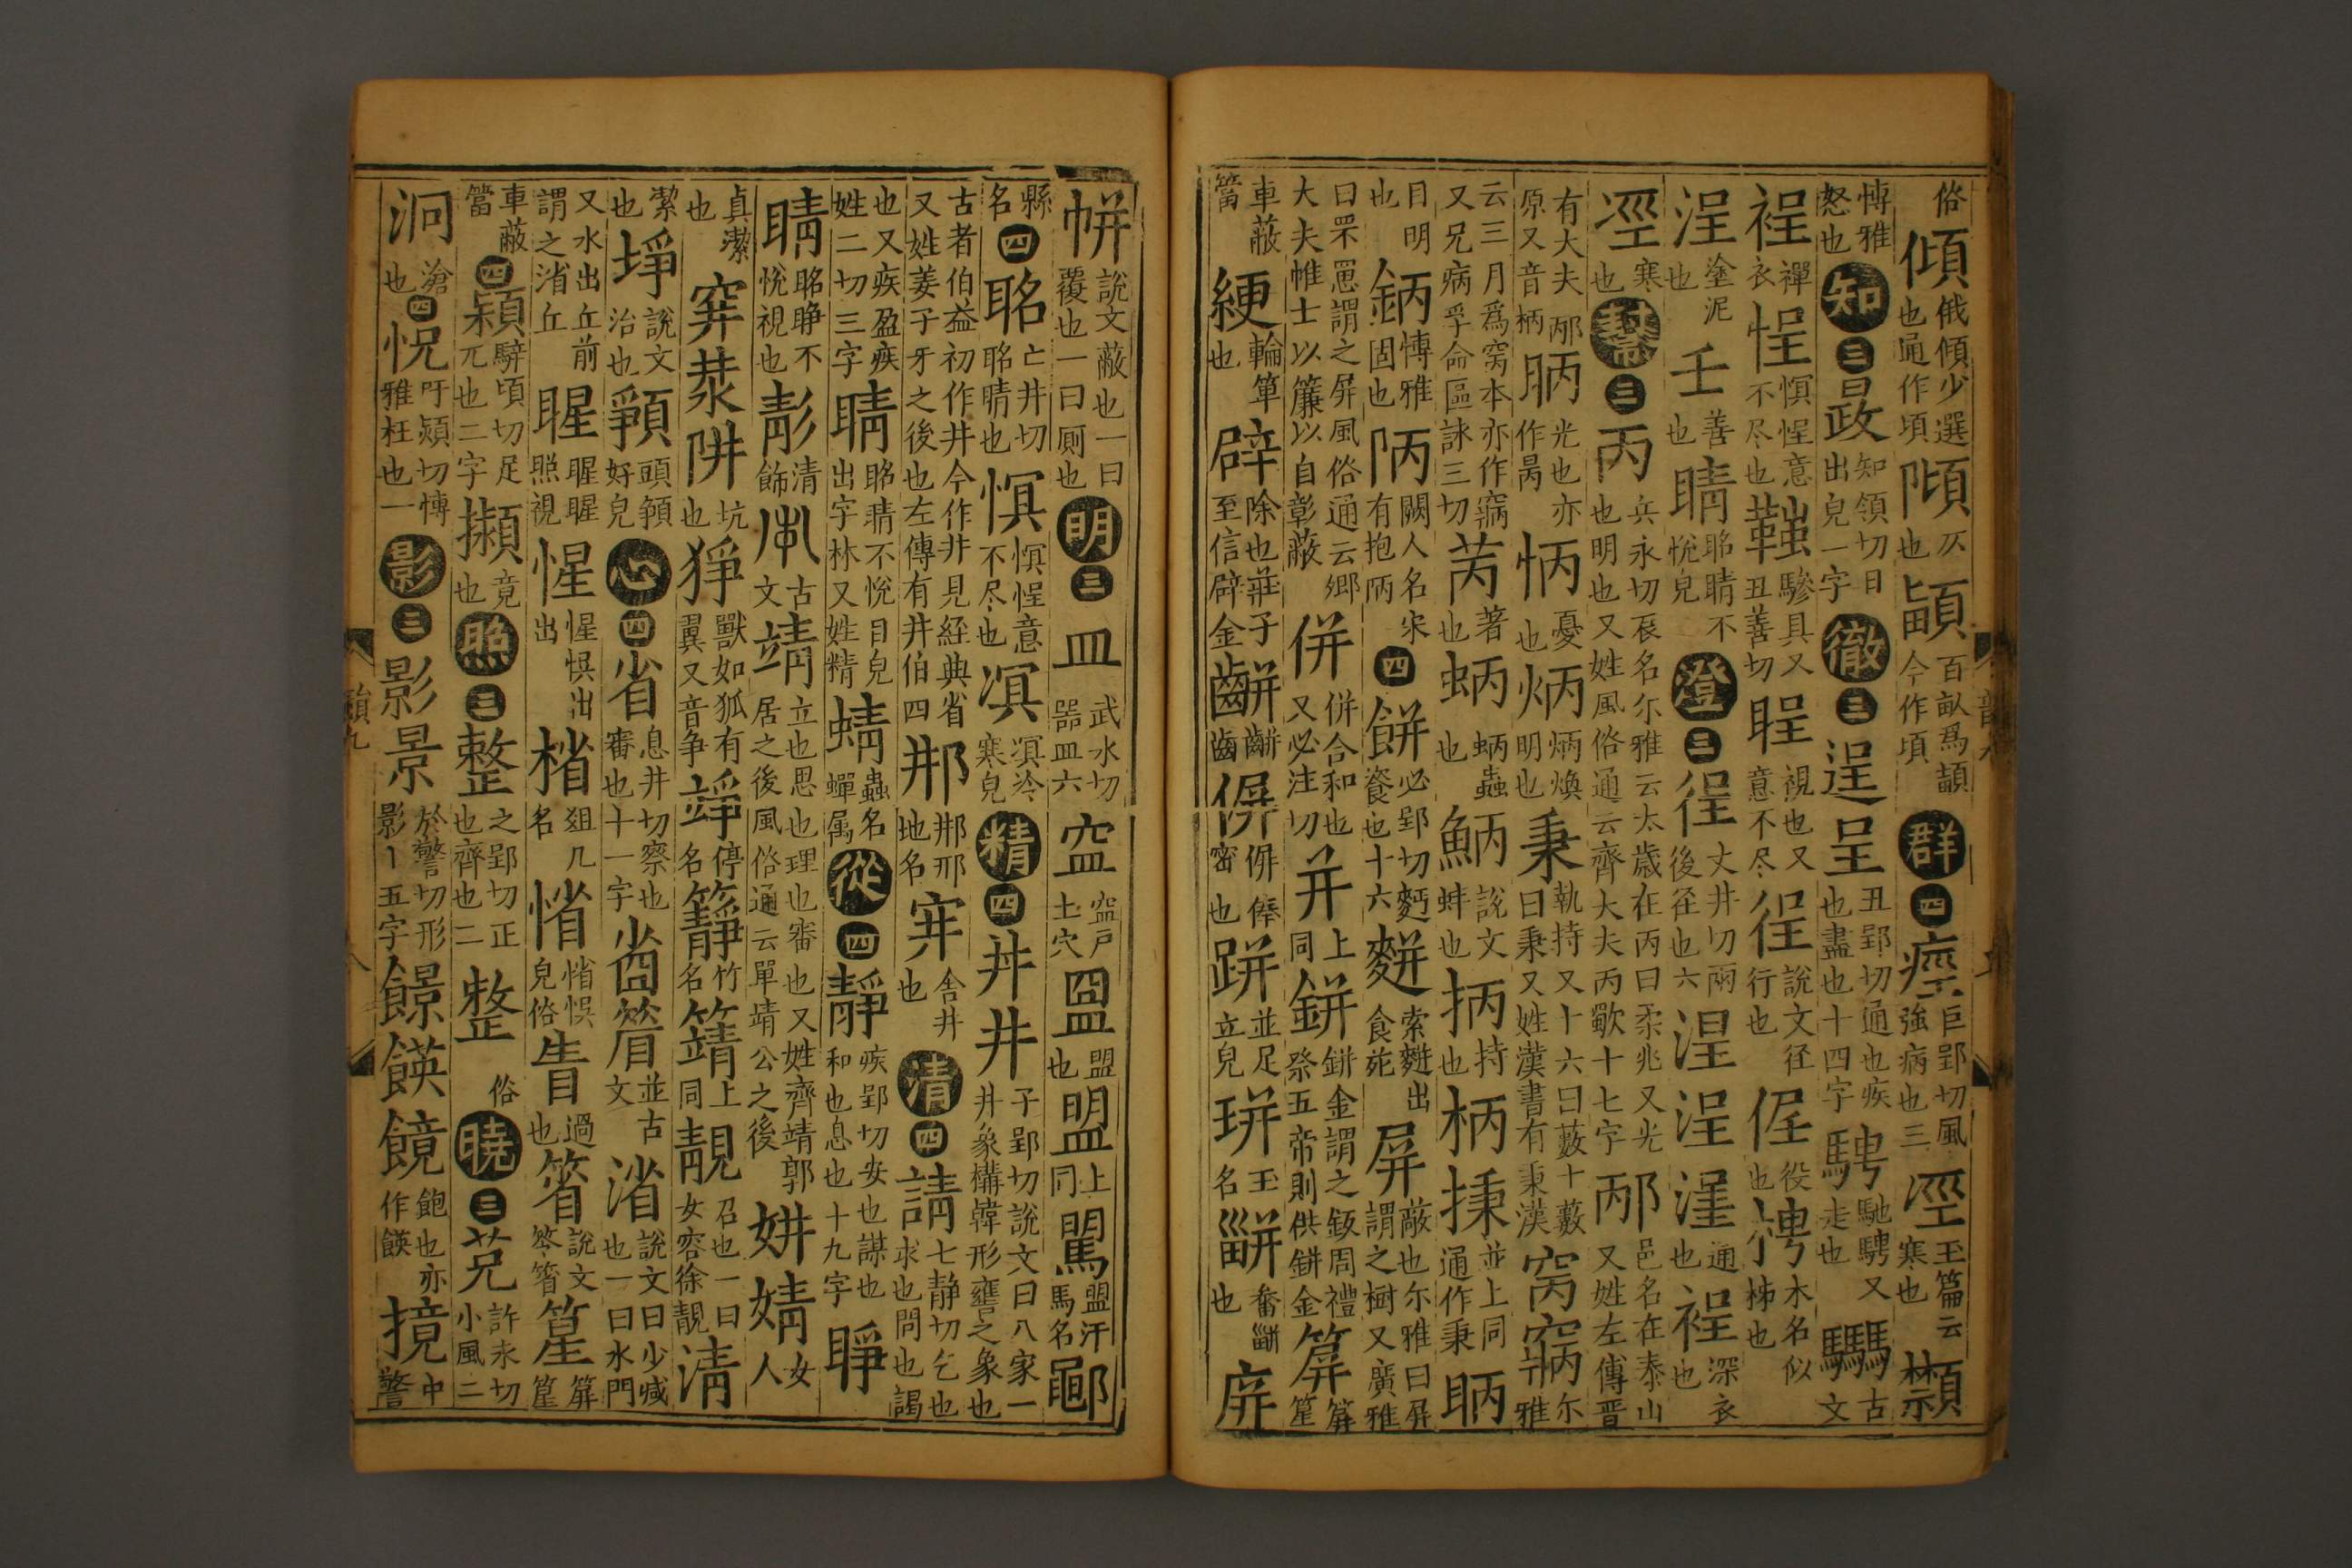 俗傾俄傾少選也通作頃仄也百畝爲今作頃群四痙巨郢切風強病也三玉篇云寒也
愽雅怒也知三晸知領切日出皃一字徹三逞呈丑郢切通也疾也盡也十四字騁馳騁又走也古文
裎襌衣悜慏悜意不尽也驂具又丑善切睈視也又意不尽徎說文径行也侱役也木名似柹也
浧塗泥也壬善也睛眳睛不悅皃澄三徎丈井切雨後径也六浧浧通也裎深衣也
寒也三丙兵永切辰名尔雅云太歲在丙曰柔兆又光也明也又姓風俗通云齊大夫丙歜十七字邴邑名在泰山又姓左傳晋
有大夫邴原又音柄昞光也亦作昺怲憂也炳炳煥明也秉執持又十六曰藪十藪曰秉又姓漢書有秉漢寎窉尔雅
云三月爲寎本亦作窉又兄病孚命區詠三切苪著也蛃蛃蟲也鮩說文蚌也抦持也柄棅並上同通作秉眪
目明也鈵愽雅固也陃闕人名宋有抱陃四餅必郢切麪餈也十六䴵索䴵出食苑屏蔽也尔雅曰屏謂之樹又廣雅
曰罘罳謂之屏風俗通云郷大夫帷士以簾以自彰蔽併併合和也又必注切并上同鉼鉼金謂之鈑周禮祭五帝則供鉼金箳箳篂
車蔽簹綆輪箄也辟除也莊子至信辟金偋偋俸窗也跰並足立皃玉名畚也庰
帡說文蔽也一曰覆也一曰厠也明三皿武永切器皿六土穴盟也盟上同盟汗馬名鄳
縣名四眳亡井切眳睛也慏慏悜意不尽也凕凕冷寒皃精四丼井子郢切說文曰八家一井象構韓形罋之象也
古者伯益初作井今作井見経典省又姓姜子牙之後也左傳有井伯四地名穽舍井也清四請七静切乞也求也問也謁
也又疾盈疾姓二切三字睛眳睛不悅目皃出字林又姓精蜻蟲名蟬属從四靜疾郢切安也謀也和也息也十九字睜
睛眳睜不悅視也彭清飾古文靖立也思也理也審也又姓齊靖郭居之後風俗通云單靖公之後妌婧女人
貞潔也穽阱坑也猙獸如狐有翼又音争竫停名竹名上同靚召也一曰女容徐靚清
潔也埩說文治也頭好皃心四省息井切察也審也十一字並古文渻說文曰少減也一曰水門
又水出丘前謂之渻丘睲睲睲照視惺惺悞出俎几名惰皃俗眚過也箵說文篂箳篂
車蔽簹四頴騂頃切足兀也二字竟也照三整之郢切正也齊也二整俗曉三許永切小風二
泂滄也四怳吁熲切愽雅枉也一影三影景於警切形影五字飽也亦作撔中警